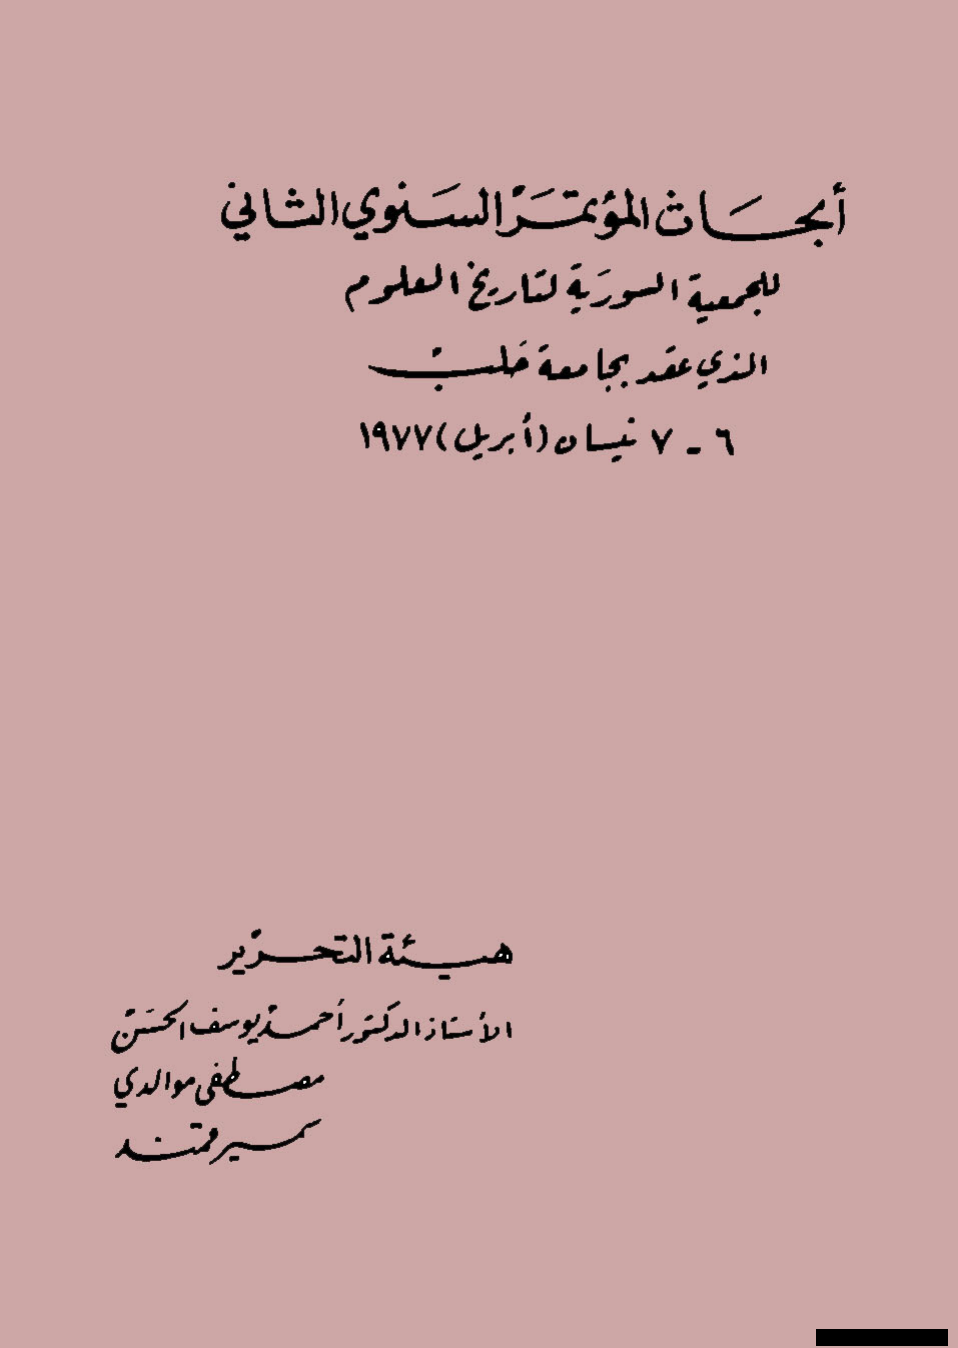 أبحاث المؤتمر السنوي الثاني
للجمعية السورية لتاريخ العلوم
الذي عقد بجامعة حلب
٦ - ٧ نيسان (أبريل) ١٩٧٧
هيئة التحرير
الأستاذ الدكتور أحمد يوسف الحسن
مصطفى موالدي
سمير